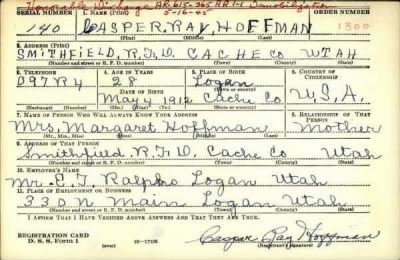 Honorable Discharge AR 615-365 RR 1-1 Demobilization
5-16-45
SERIAL NUMBER 1. NAME (Print) ORDER NUMBER
140 CASPER. RAY. HOFFMAN 1300
(First) (Middle) (Last)
2. ADDRESS (Print)
SMITHFIELD, R.F.D. CACHE CO UTAH
(Number and street or R. F. D. number) (Town) (County) (State)
3. TELEPHONE 4. AGE IN YEARS 5. PLACE OF BIRTH 6. COUNTRY OF CITIZENSHIP
097R4 28 Logan
DATE OF BIRTH (Town or county)
May 4 1912 Cache Co U.S.A.
(Exchange) (Number) (Mo.) (Day) (Yr.) (State or country)
7. NAME OF PERSON WHO WILL ALWAYS KNOW YOUR ADDRESS 8. RELATIONSHIP OF THAT PERSON
Mrs. Margaret Hoffman Mother
(Mr., Mrs., Miss) (First) (Middle) (Last)
9. ADDRESS OF THAT PERSON
Smithfield R.F.D. Cache Co Utah
(Number and street or R. F. D. number) (Town) (County) (State)
10. EMPLOYER'S NAME
Mr. Ralphs Logan Utah
11. PLACE OF EMPLOYMENT OR BUSINESS
330 N Main Logan Utah
(Number and street or R. F. D. number) (Town) (County) (State)
I AFFIRM THAT I HAVE VERIFIED ABOVE ANSWERS AND THAT THEY ARE TRUE.
REGISTRATION CARD
D. S. S. FORM 1 16-17105 Casper Ray Hoffman
(Registrant's signature)